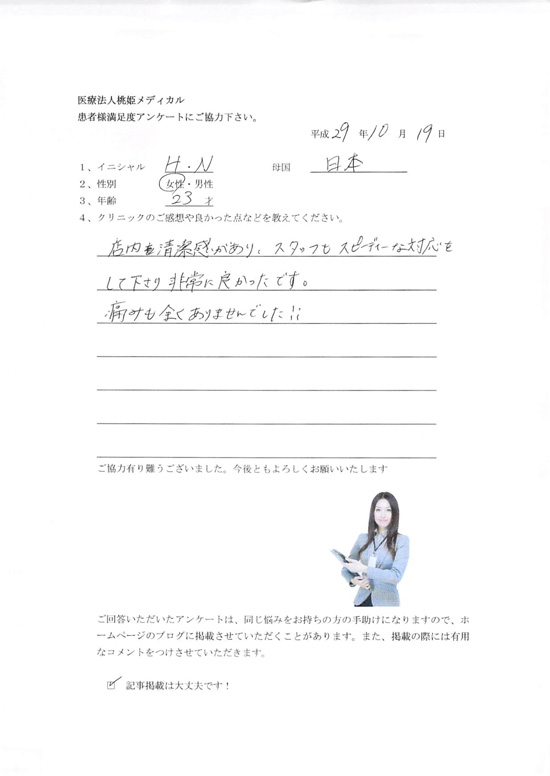 医療法人桃姫メディカル
患者様満足度アンケートにご協力下さい。
平成 29 年 10 月 19 日
1、イニシャル H・N 母国 日本
2、性別 女性・男性
3、年齢 23 才
4、クリニックのご感想や良かった点などを教えてください。
店内も清潔感があり、スタッフもスピーディーな対応を
して下さり非常に良かったです。
痛みも全くありませんでした!!
ご協力有り難うございました。今後ともよろしくお願いいたします
ご回答いただいたアンケートは、同じ悩みをお持ちの方の手助けになりますので、ホ
ームページのブログに掲載させていただくことがあります。また、掲載の際には有用
なコメントをつけさせていただきます。
☑ 記事掲載は大丈夫です!